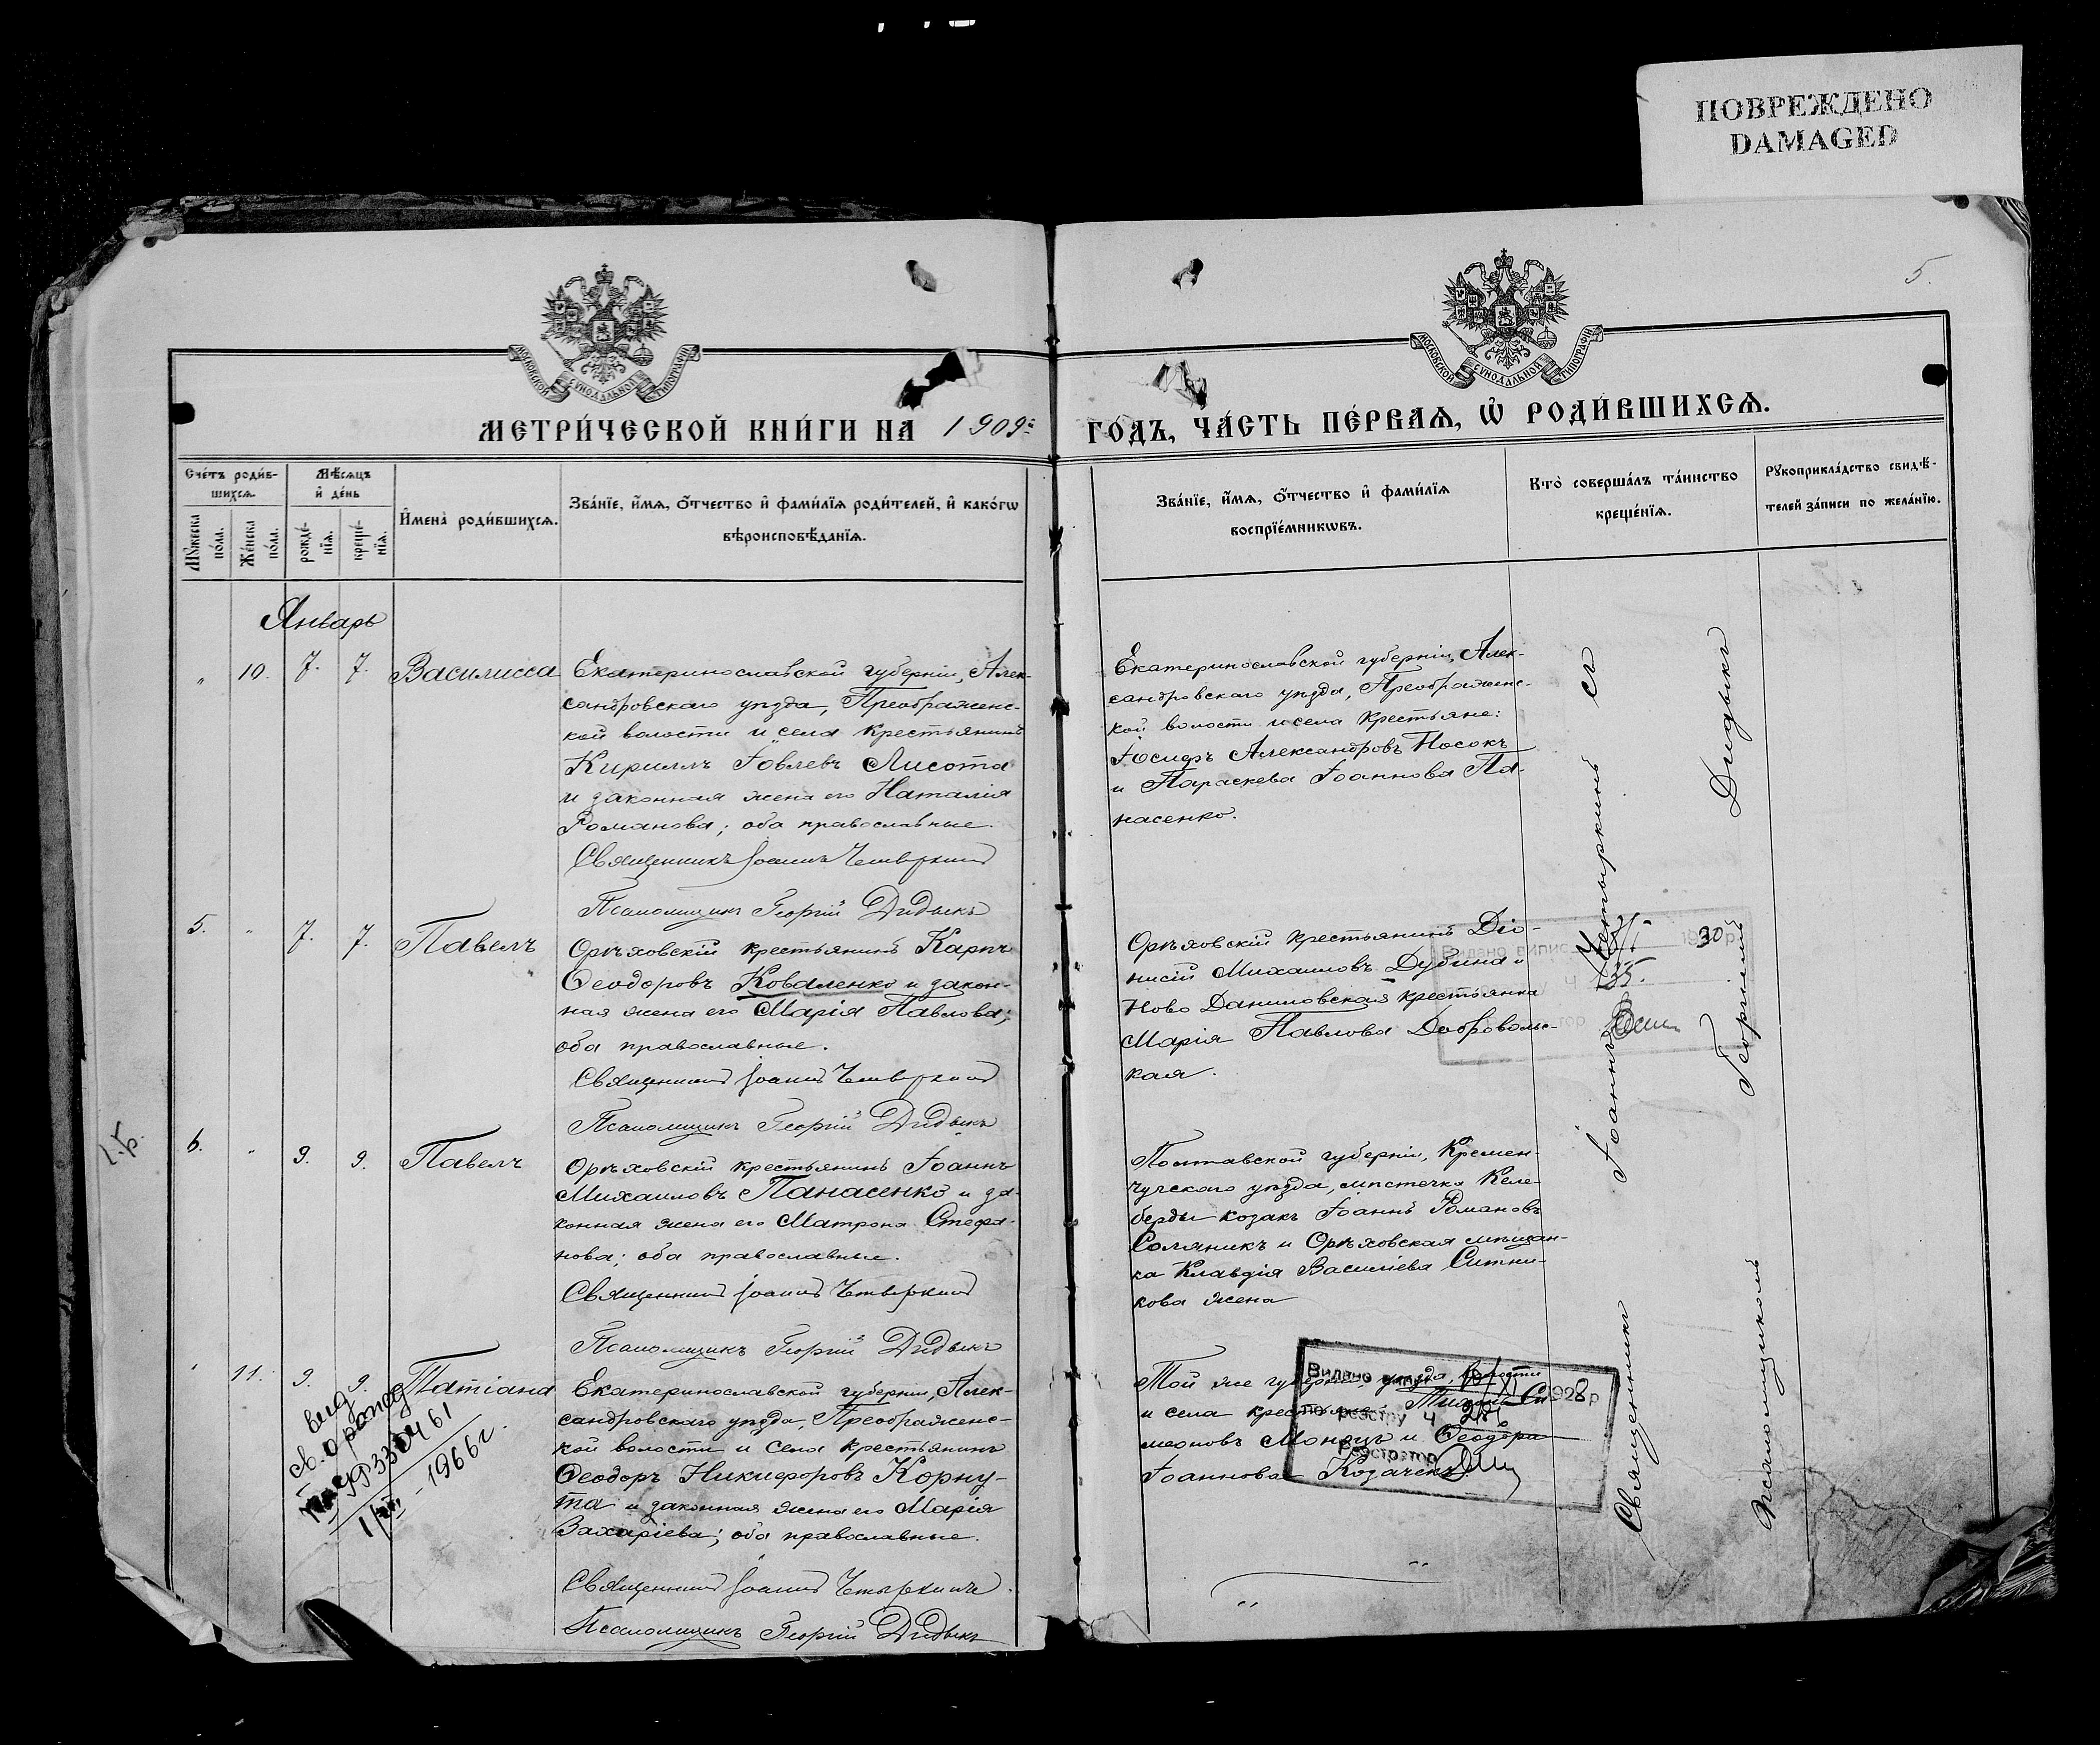 ПОВРЕЖДЕНО
DAMAGED
5.
МОСКОВСКОЙ СѴНОДАЛЬНОЙ ТИПОГРАФІИ
МОСКОВСКОЙ СѴНОДАЛЬНОЙ ТИПОГРАФІИ
МЕТРИ́ЧЕСКОЙ КНИ́ГИ НА 1909й
ГО́ДЪ, ЧА́СТЬ ПЕ́РВАѦ, Ѡ҆ РОДИ́ВШИХСѦ.
Сче́тъ роди́в-
шихсѧ.
Мѹ́жеска по́ла.
Же́нска по́ла.
Мѣ́сѧцъ
и҆ де́нь
рожде́-
нїѧ.
креще́-
нїѧ.
И҆мена̀ роди́вшихсѧ.
Зва́нїе, и҆́мѧ, ѻ҆́тчество и҆ фами́лїѧ роди́телей, и҆ како́гѡ
вѣроисповѣ́данїѧ.
Зва́нїе, и҆́мѧ, ѻ҆́тчество и҆ фами́лїѧ
воспрїе́мникѡвъ.
Кто̀ соверша́лъ та́инство
креще́нїѧ.
Рѹкоприкла́дство свидѣ́-
телей за́писи по жела́нїю.
Январь
" 10. 7. 7. Василисса
Екатеринославской губерніи, Алек-
сандровскаго уѣзда, Преображенс-
кой волости и села крестьянинъ
Кириллъ Іовлевъ Лисота
и законная жена его Наталія
Романова; оба православные.
Священникъ Іоаннъ Четыркинъ
Псаломщикъ Георгій Дидыкъ
Екатеринославской губерніи, Алек-
сандровскаго уѣзда, Преображенс-
кой волости и села крестьяне:
Іосифъ Александровъ Носокъ
и Параскева Іоаннова Па-
насенко.
5. " 7. 7. Павелъ
Орѣховскій крестьянинъ Карпъ
Ѳеодоровъ Коваленко и закон-
ная жена его Марія Павлова;
оба православные.
Священникъ Іоаннъ Четыркинъ
Псаломщикъ Георгій Дидыкъ
Орѣховскій крестьянинъ Діо-
нисій Михаиловъ Дубина и
Ново Даниловская крестьянка
Марія Павлова Добровольс-
кая.
6. " 9. 9. Павелъ
Орѣховскій крестьянинъ Іоаннъ
Михаиловъ Панасенко и за-
конная жена его Матрона Стефа-
нова; оба православные.
Священникъ Іоаннъ Четыркинъ
Псаломщикъ Георгій Дидыкъ
Полтавской губерніи, Кремен-
чугскаго уѣзда, мѣстечка Келе-
берды козакъ Іоаннъ Романовъ
Соляникъ и Орѣховская мѣщан-
ка Клавдія Василіева Ситни-
кова жена
11. 9. 9. Татіана
Екатеринославской губерніи, Алек-
сандровскаго уѣзда, Преображенс-
кой волости и села крестьянинъ
Ѳеодоръ Никифоровъ Корну-
та и законная жена его Марія
Захаріева; оба православные.
Священникъ Іоаннъ Четыркинъ
Псаломщикъ Георгій Дидыкъ
Той же губерніи, уѣзда, волости
и села крестьяне: Си-
меоновъ и Ѳеодора
Іоаннова Козаченко
Видано випис 1928 р
по реєстру ч 28
Реєстратор
Видано випис 1930 р
1966 г.
Священникъ Іоаннъ Четыркинъ съ
псаломщикомъ Георгіемъ Дидыкъ